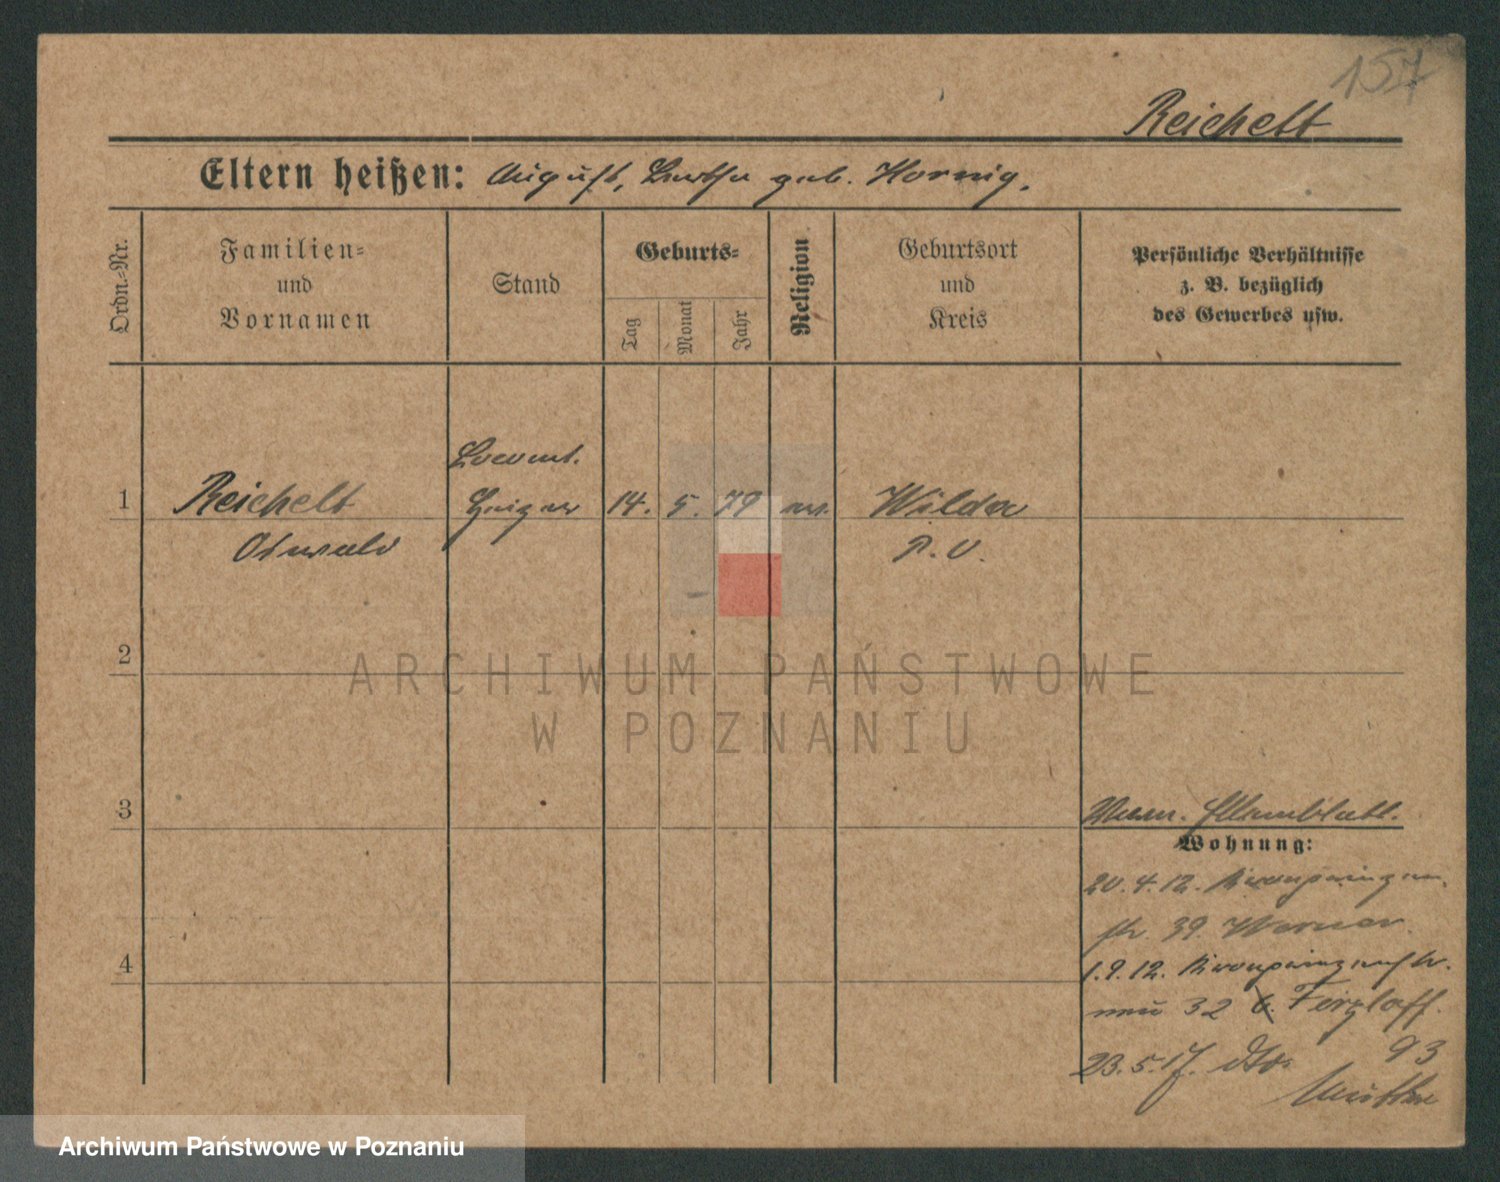 157
Reichelt
Eltern heißen: August, Bertha geb. Hornig.
Ordn.-Nr.
Familien-
und
Vornamen
Stand
Geburts-
Tag
Monat
Jahr
Religion
Geburtsort
und
Kreis
Persönliche Verhältnisse
z. B. bezüglich
des Gewerbes usw.
Locomt.
1 Reichelt Heizer 14. 5. 79 ev. Wilda
Oswald P. O.
2
3
Wohnung:
20.4.12. Kronprinzen
str. 39. Werner.
4
1.9.12. Kronprinzenstr.
neu 32
23.5.17. dto. 93
ARCHIWUM PAŃSTWOWE
W POZNANIU
Archiwum Państwowe w Poznaniu